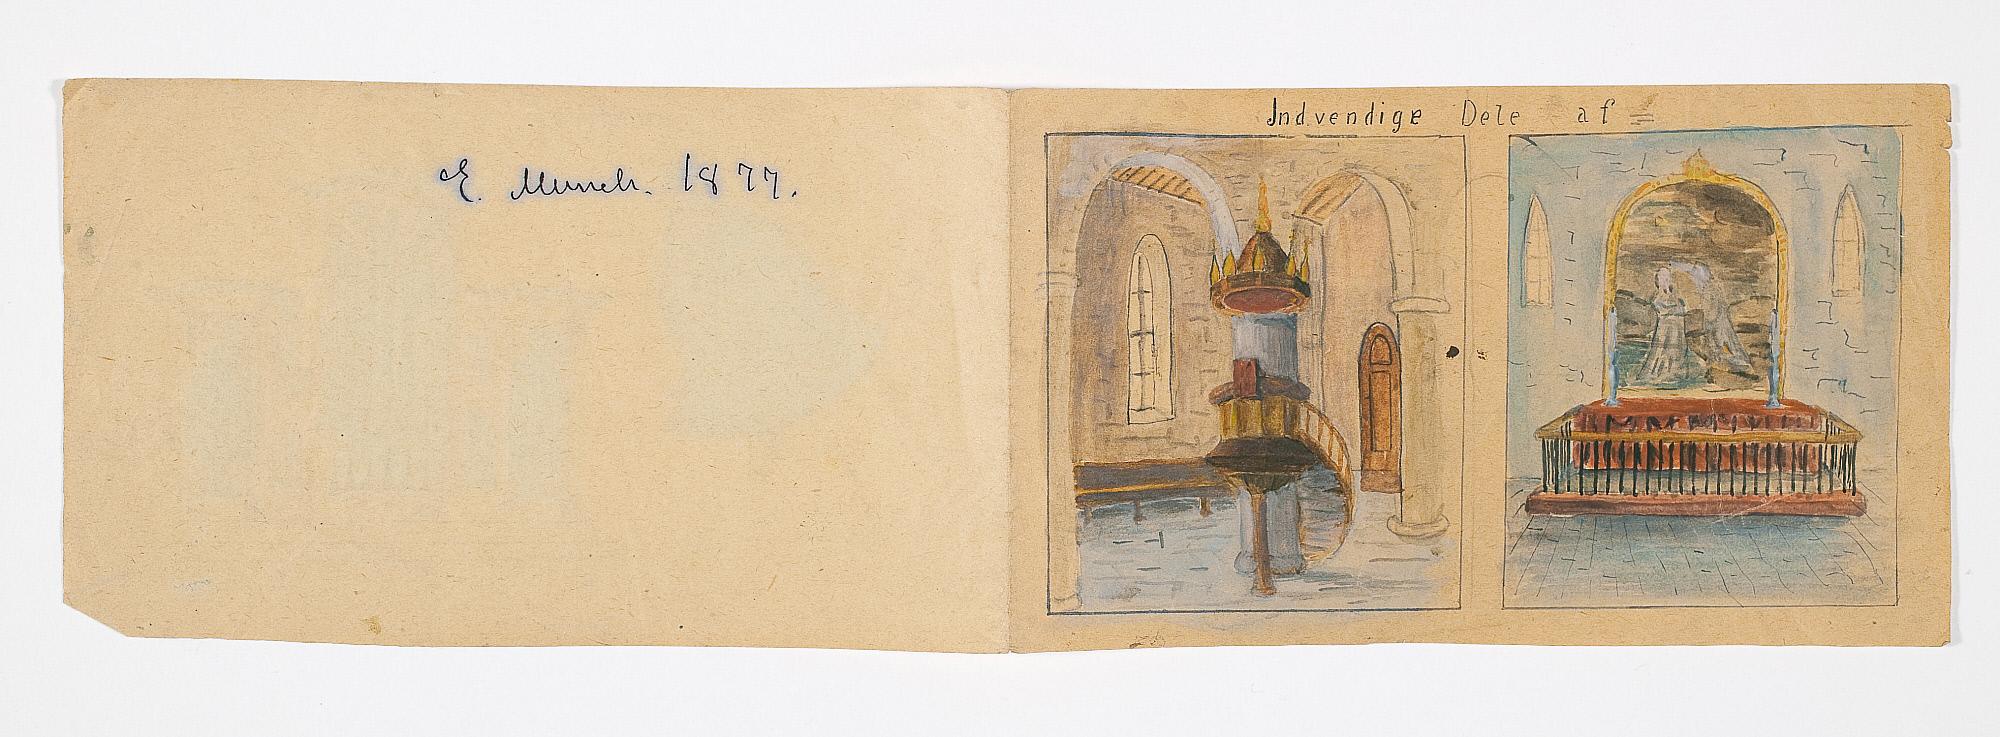 E. Munch. 1877.
Indvendige Dele af =